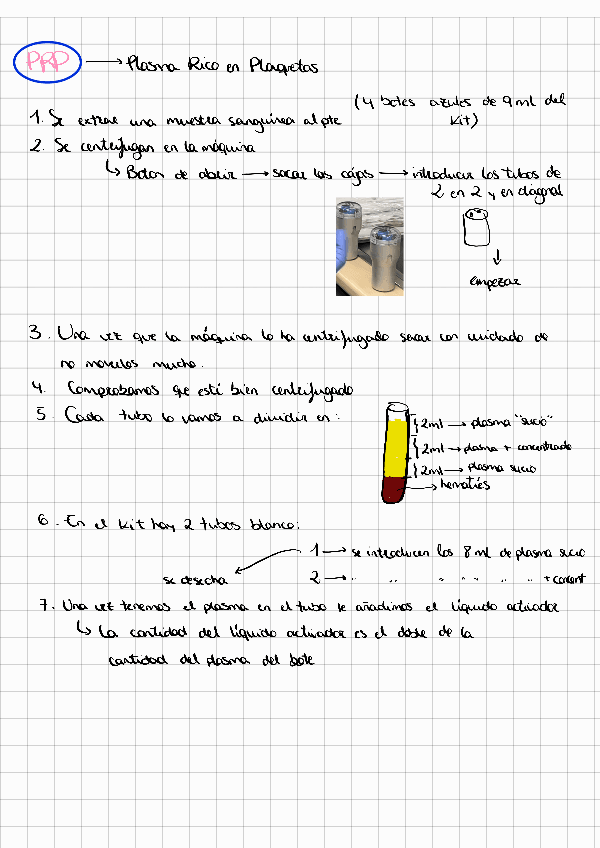 PRP → Plasma Rico en Plaquetas
1. Se extrae una muestra sanguínea al pte (4 botes azules de 9 ml del Kit)
2. Se centrifugan en la máquina
↳ Boton de abrir → sacar las cajas → introducir los tubos de
2 en 2 y en diagnal
↓
empezar
3. Una vez que la máquina lo ha centrifugado sacar con cuidado de
no moverlos mucho.
4. Comprobamos qe está bien centrifugado
5. Cada tubo lo vamos a dividir en:
2ml → plasma "sucio"
2ml → plasma + concentrado
2ml → plasma sucio
→ hematíes
6. En el kit hay 2 tubos blanco:
1 → se introducen los 8 ml de plasma sucio
se desecha
2 → " " " " " " " + concent
7. Una vez tenemos el plasma en el tubo le añadimos el líquido activador
↳ La cantidad del líquido activador es el doble de la
cantidad del plasma del bote